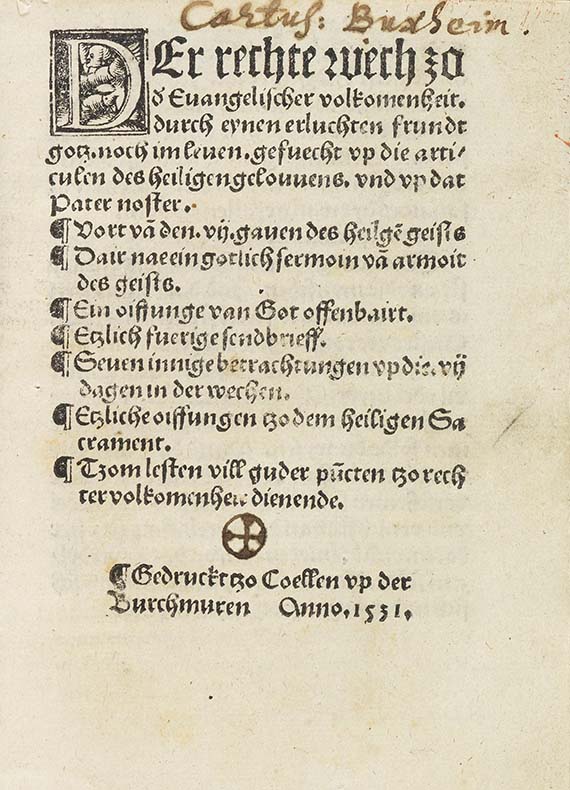 Cartus: Buxheim.
DEr rechte wech zo
d Euangelischer volkomenheit.
durch eynen erluchten frundt
gotz. noch im leven. gesuecht vp die arti⸗
culen des heiligen gelouvens. vnd vp dat
Pater noster.
¶ Vort vā den. vij. gauen des heilgē geists
¶ Dair nae ein gotlich sermoin vā armoit
des geists.
¶ Ein oiffunge van Got offenbairt.
¶ Etzlich fuerige sendbrieff.
¶ Seuen innige betrachtungen vp die. vij
dagen in der wechen.
¶ Etzliche oiffungen tzo dem heiligen Sa
crament.
¶ Tzom lesten vill guder pūcten tzo rech
ter volkomenheit dienende.
¶ Gedruckt tzo Coellen vp der
Burchmuren Anno. 1531.